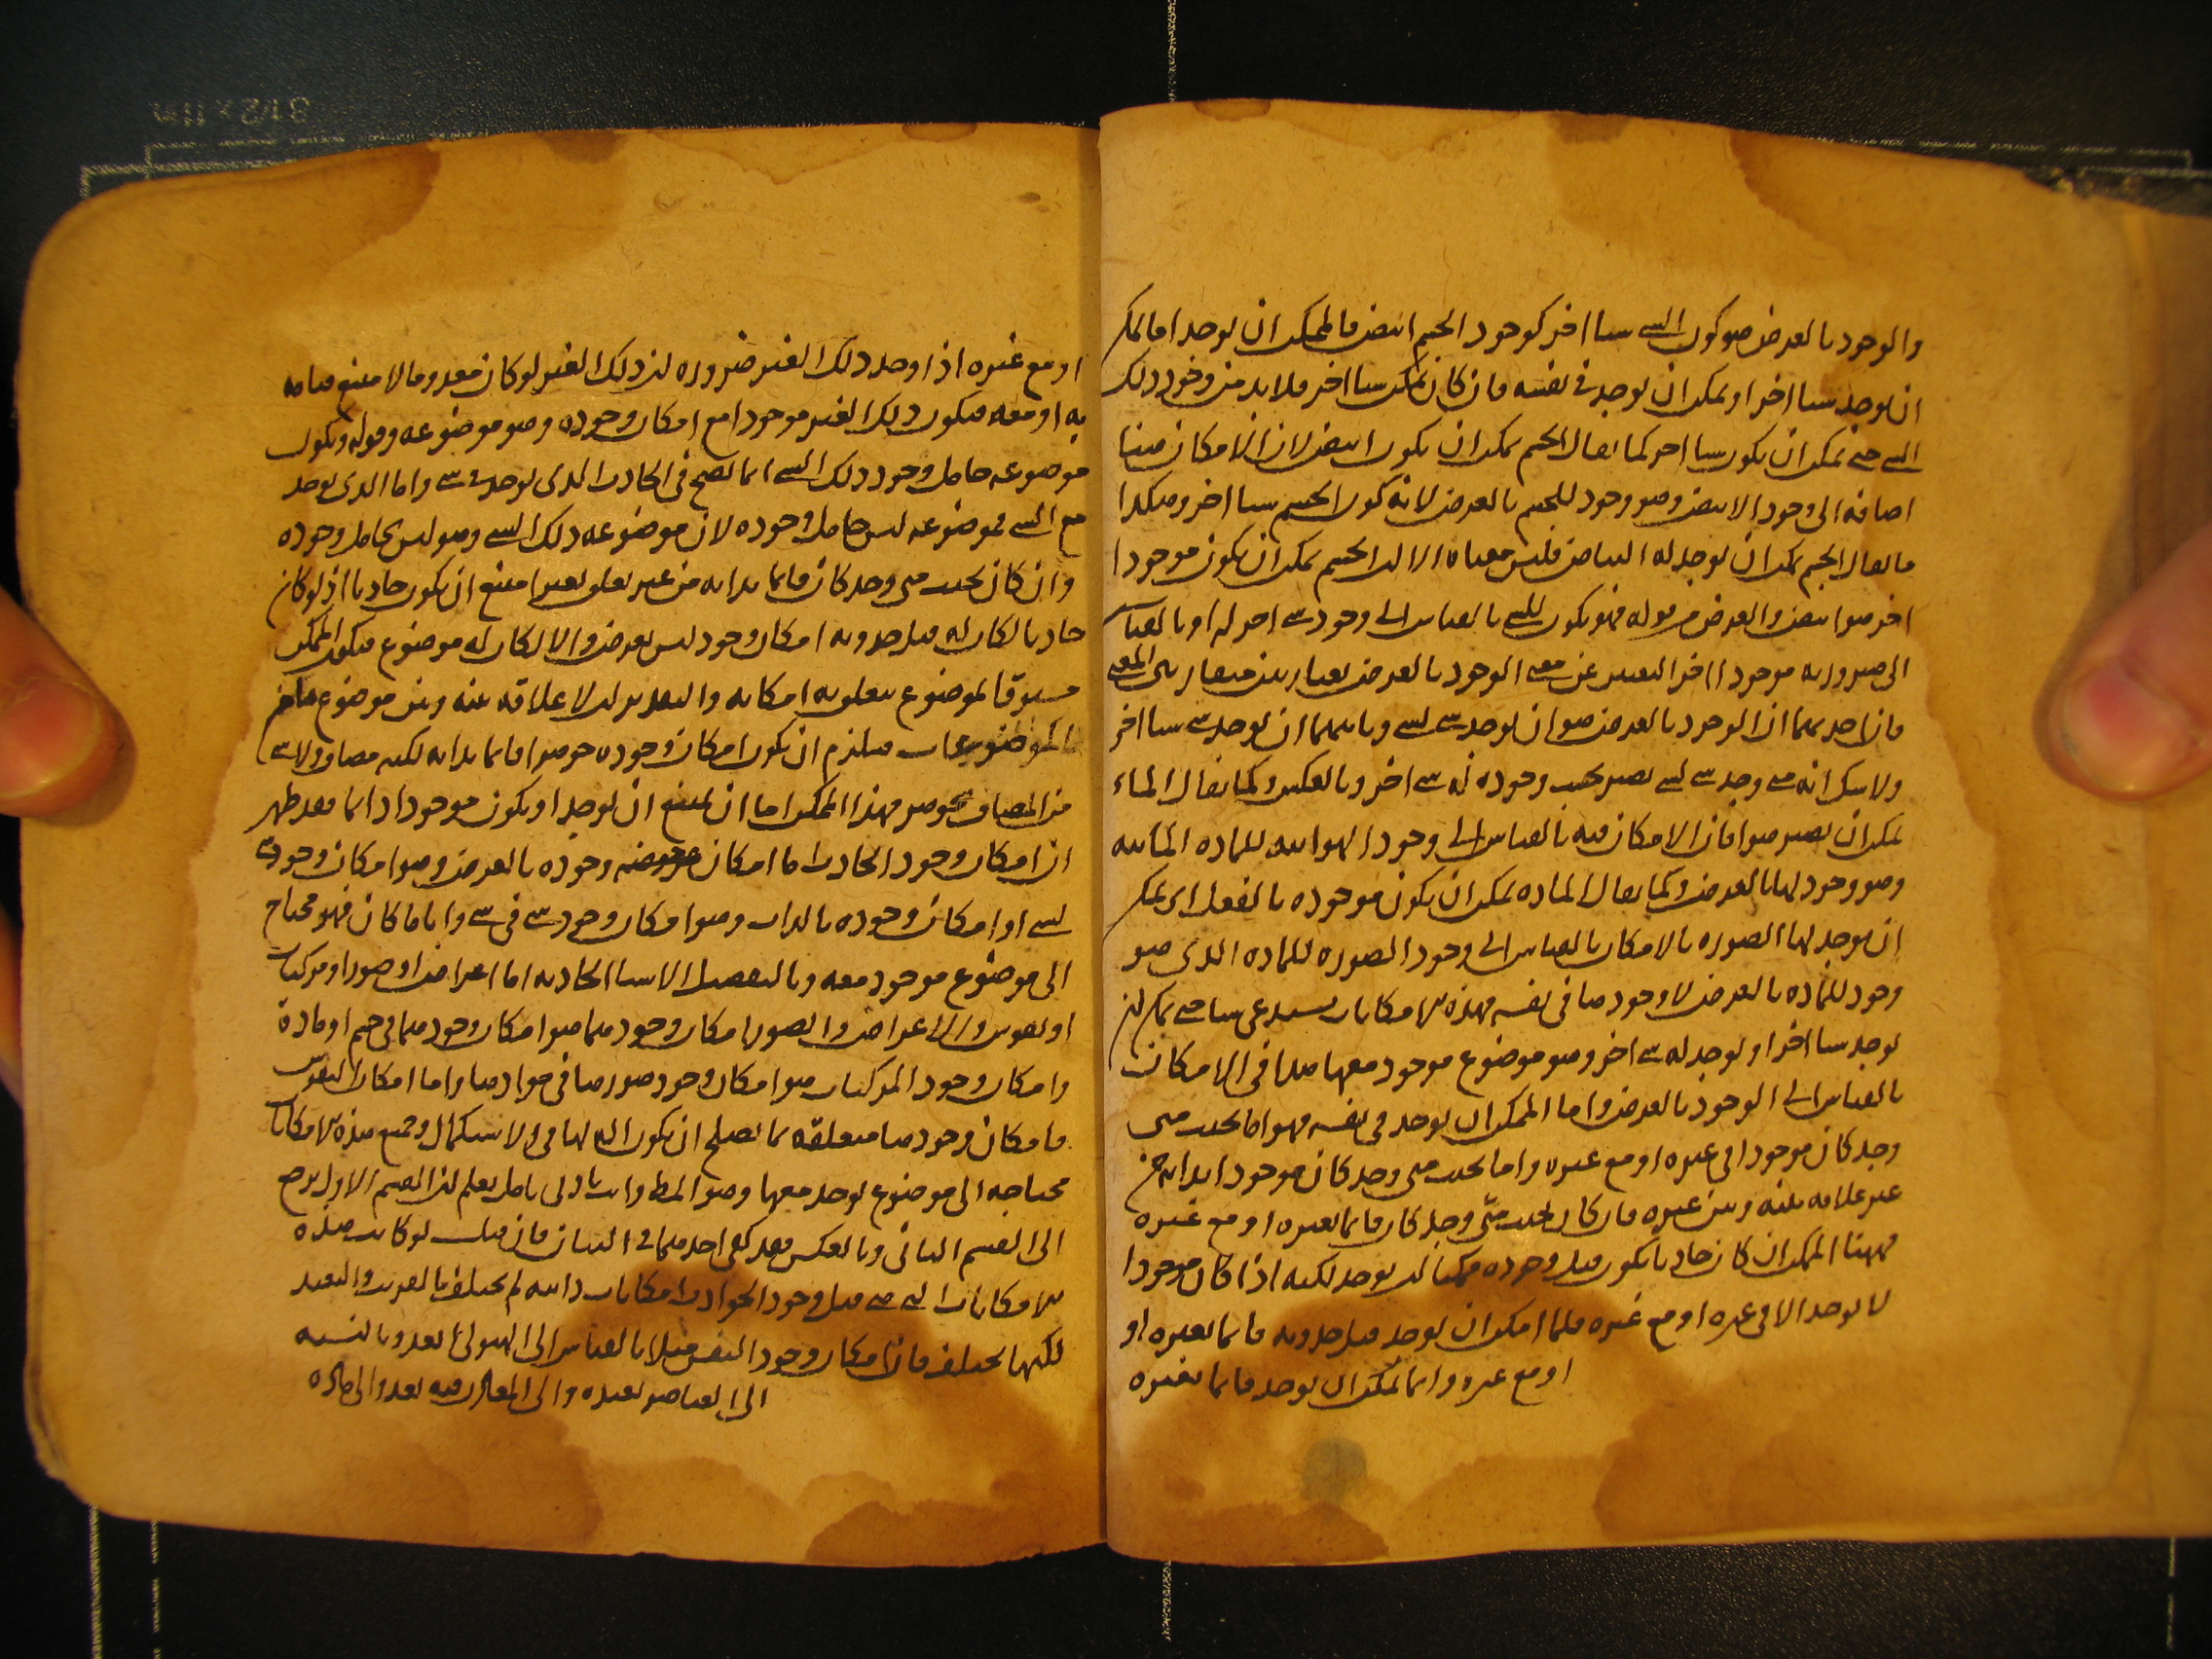 والوجود بالعرض هو كون الشىء شيئا اخر كوجود الجسم ابيض فالممكن ان يوجد اما يمكن
ان يوجد شيئا اخر او يمكن ان يوجد في نفسه فان كان يمكن شيئا اخر فلا بد من وجود ذلك
الشىء حتى يمكن ان يكون شيئا اخر كما يقال الجسم يمكن ان يكون ابيض لان الامكان هنا
اضافة الى وجود الابيض وهو وجود للجسم بالعرض لانه كون الجسم شيئا اخر وهكذا
ما يقال الجسم يمكن ان يوجد له البياض فليس معناه الا ان الجسم يمكن ان يكون موجودا
اخر هو ابيض والعرض من قوله فهو يكون للشىء بالقياس الى وجود شىء اخر له او بالقياس
الى صيرورته موجودا اخر التعبير عن معنى الوجود بالعرض بعبارتين متقاربتى المعنى
فان احديهما ان الوجود بالعرض هو ان يوجد شىء لشىء وثانيهما ان يوجد شىء شيئا اخر
ولا شك انه متى وجد شىء لشىء يصير بحسب وجوده له شىء اخر وبالعكس وكما يقال الماء
يمكن ان يصير هوا فان الامكان فيه بالقياس الى وجود الهوائية للمادة المائية
وهو وجود لها بالعرض وكما يقال المادة يمكن ان يكون موجودة بالفعل اى يمكن
ان يوجد لها الصورة بالامكان بالقياس الى وجود الصورة للمادة الذى هو
وجود للمادة بالعرض لا وجودها في نفسه فهذه الامكانات يستدعى شيئا حتى يمكن ان
يوجد شيئا اخر او يوجد له شىء اخر وهو موضوع موجود معها هذا في الامكانات
بالقياس الى الوجود بالعرض واما الممكن ان يوجد في نفسه فهو اما بحيث متى
وجد كان موجودا في غيره او مع غيره واما بحيث متى وجد كان موجودا بذاته من
غير علاقة بينه وبين غيره فان كان بحيث متى وجد كان قائما بغيره او مع غيره
فهذا الممكن ان كان حادثا يكون قبل وجوده ممكنا ان يوجد لكنه اذا كان موجودا
لا يوجد الا في غيره او مع غيره فلما امكن ان يوجد قبل حدوثه قائما بغيره او
او مع غيره وانما يمكن ان يوجد قائما بغيره
او مع غيره اذا وجد ذلك الغير ضرورة لان ذلك الغير لو كان معدوما لامتنع قيامه
به او معه فيكون ذلك الغير موجودا مع امكان وجوده وهو موضوعه وقوله ويكون
موضوعه حامل وجود ذلك الشىء انما يصح في الحادث الذى يوجد في شىء واما الذى يوجد
مع الشىء فموضوعه ليس حامل وجوده لان موضوعه ذلك الشىء وهو ليس بحامل وجوده
وان كان بحيث متى وجد كان قائما بذاته من غير تعلق بغيره امتنع ان يكون حادثا اذ لو كان
حادثا لكان له قبل حدوثه امكان وجود ليس بعرض والا لكان له موضوع فيكون الممكن
مسبوقا لموضوع يتعلق به امكانه والتقدير ان لا علاقة بينه وبين موضوع ما من
الموضوعات فيلزم ان يكون امكان وجوده جوهرا قائما بذاته لكنه مضاف ولا شىء
من المضاف بجوهر فهذا الممكن اما ان يمتنع ان يوجد او يكون موجودا دائما فقد ظهر
ان امكان وجود الحادث اما امكان وجوده بالعرض وهو امكان وجود شىء
لشىء او امكان وجوده بالذات وهو امكان وجود شىء في شىء واياما كان فهو محتاج
الى موضوع موجود معه وبالتفصيل الاشيا الحادثة اما اعراض او صور او مركبات
او نفوس والاعراض والصور امكان وجودهما هو امكان وجودهما في جسم او مادة
وامكان وجود المركبات هو امكان وجود صورها في موادها واما امكان النفوس
فامكان وجودها متعلقة بما يصلح ان يكون الة لها في الاستكمال وجميع هذه الامكانات
محتاجة الى موضوع يوجد معها وهو المط وانت بادنى تامل تعلم ان القسم الاول يرجع
الى القسم الثانى وبالعكس فقد كفى احدهما في البيان فان قيل لو كانت هذه
الامكانات التى هى قبل وجود الحوادث امكانات ذاتية لم يختلف بالقرب والبعد
لكنها يختلف فان امكان وجود النفس مثلا بالقياس الى الهيولى ابعد وبالنسبة
الى العناصر بعيدة والى المعادن فيه بعد والى مادة